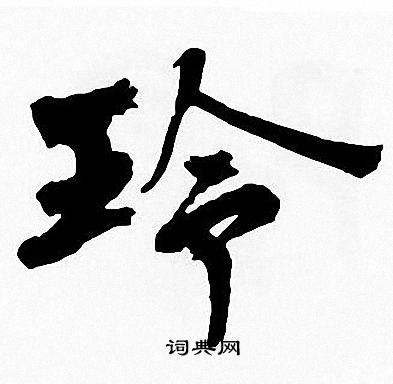 玲
词典网